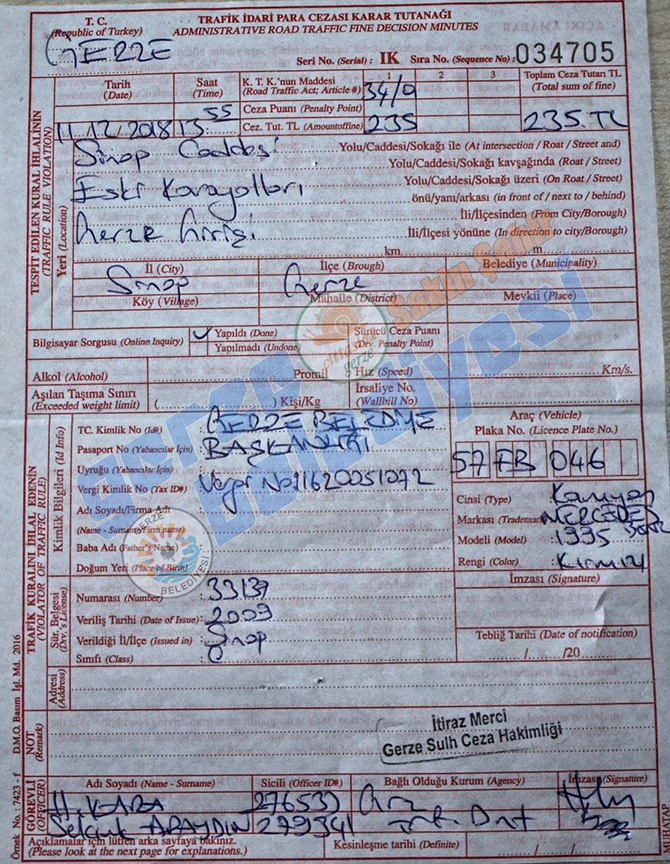 T. C.
(Republic of Turkey)
GERZE
TRAFİK İDARİ PARA CEZASI KARAR TUTANAĞI
ADMINISTRATIVE ROAD TRAFFIC FINE DECISION MINUTES
Seri No. (Serial) : IK Sıra No. (Sequence No) : 034705
Tarih (Date)
Saat (Time)
K. T. K.'nun Maddesi (Road Traffic Act; Article #)
1 2 3
34/a
Toplam Ceza Tutarı TL (Total sum of fine)
Ceza Puanı (Penalty Point)
Cez. Tut. TL (Amountoffine) 235
235.TL
11.12.2018 13.55
TESPİT EDİLEN KURAL İHLALİNİN
(TRAFFIC RULE VIOLATION)
Yeri (Location)
Sinop Caddesi
Yolu/Caddesi/Sokağı ile (At intersection / Roat / Street and)
Yolu/Caddesi/Sokağı kavşağında (Roat / Street)
Eski Karayolları
Yolu/Caddesi/Sokağı üzeri (On Roat / Street)
önü/yanı/arkası (in front of / next to / behind)
Gerze Girişi
İli/İlçesinden (From City/Borough)
İli/İlçesi yönüne (In direction to city/Borough)
km. m.
İl (City) İlçe (Brough) Belediye (Municipality)
Sinop Gerze
Köy (Village) Mahalle (District) Mevkii (Place)
Bilgisayar Sorgusu (Online Inquiry)
✓ Yapıldı (Done)
Yapılmadı (Undone)
Sürücü Ceza Puanı (Drv. Penalty Point)
Alkol (Alcohol) Promil Hız (Speed) Km/s.
Aşılan Taşıma Sınırı (Exceeded weight limit) ( ) Kişi/Kg İrsaliye No. (Wallbill No)
TRAFİK KURALINI İHLAL EDENİN
(VIOLATOR OF TRAFFIC RULE)
Kimlik Bilgileri (Id Info)
TC. Kimlik No (Id#) : GERZE BELEDİYE
Pasaport No (Yabancılar İçin) : BAŞKANLIĞI
Uyruğu (Yabancılar İçin) :
Vergi Kimlik No (Tax ID#) : Vergi No:
Adı Soyadı/Firma Adı
(Name - Surname/Firm name)
Baba Adı (Father's Name)
Doğum Yeri (Place of Birth)
Araç (Vehicle)
Plaka No. (Licence Plate No.)
57 FB 046
Cinsi (Type) : Kamyon
Markası (Trademark) MERCEDES
Modeli (Model) : 1995
Rengi (Color) : Kırmızı
İmzası (Signature)
Sür. Belgesi (Drv.'s License)
Numarası (Number) : 33137
Veriliş Tarihi (Date of Issue) : 2009
Verildiği İl/İlçe (Issued in) : Sinop
Sınıfı (Class) :
Tebliğ Tarihi (Date of notification)
/ /20
Adresi (Address)
NOT (Remark)
İtiraz Merci
Gerze Sulh Ceza Hakimliği
GÖREVLİ (OFFICER)
Adı Soyadı (Name - Surname) Sicili (Officer ID#) Bağlı Olduğu Kurum (Agency) İmzası (Signature)
H. KABA 276537
Selçuk 279341
Açıklamalar için lütfen arka sayfaya bakınız.
(Please look at the next page for explanations.)
Kesinleşme tarihi (Definite) / /
Örnek. No. : 7423 - f D.M.O. Basım İşl. Md. 2016
Gerze Belediyesi
Sakin Şehir
gerze
GERZE
BELEDİYESİ